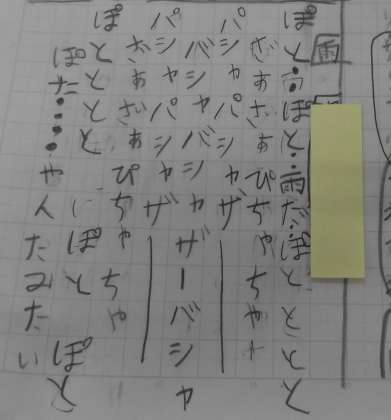 雨
ぽと
ぽと
雨だ
ぽととと
ざあざあぴちゃちゃ
パシャパシャザー
バシャバシャザーバシャ
パシャパシャザー
ざあざあぴちゃちゃ
ぽととと
ぽと
ぽと
ぽた・・・やんだみたい